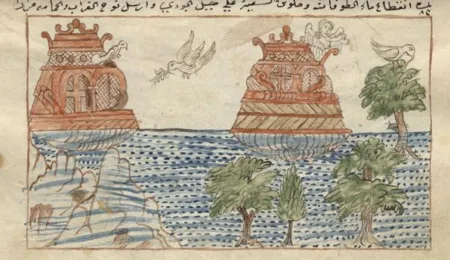 انقطاع ماء الطوفان وجلوس السفينة علي جبل الجودي وارسل نوح الغراب والحمامه